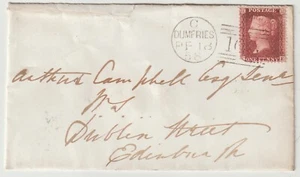 C
DUMFRIES
POSTAGE
Arthur Campbell Esqr Senr
WS
Dublin Street
Edinburgh